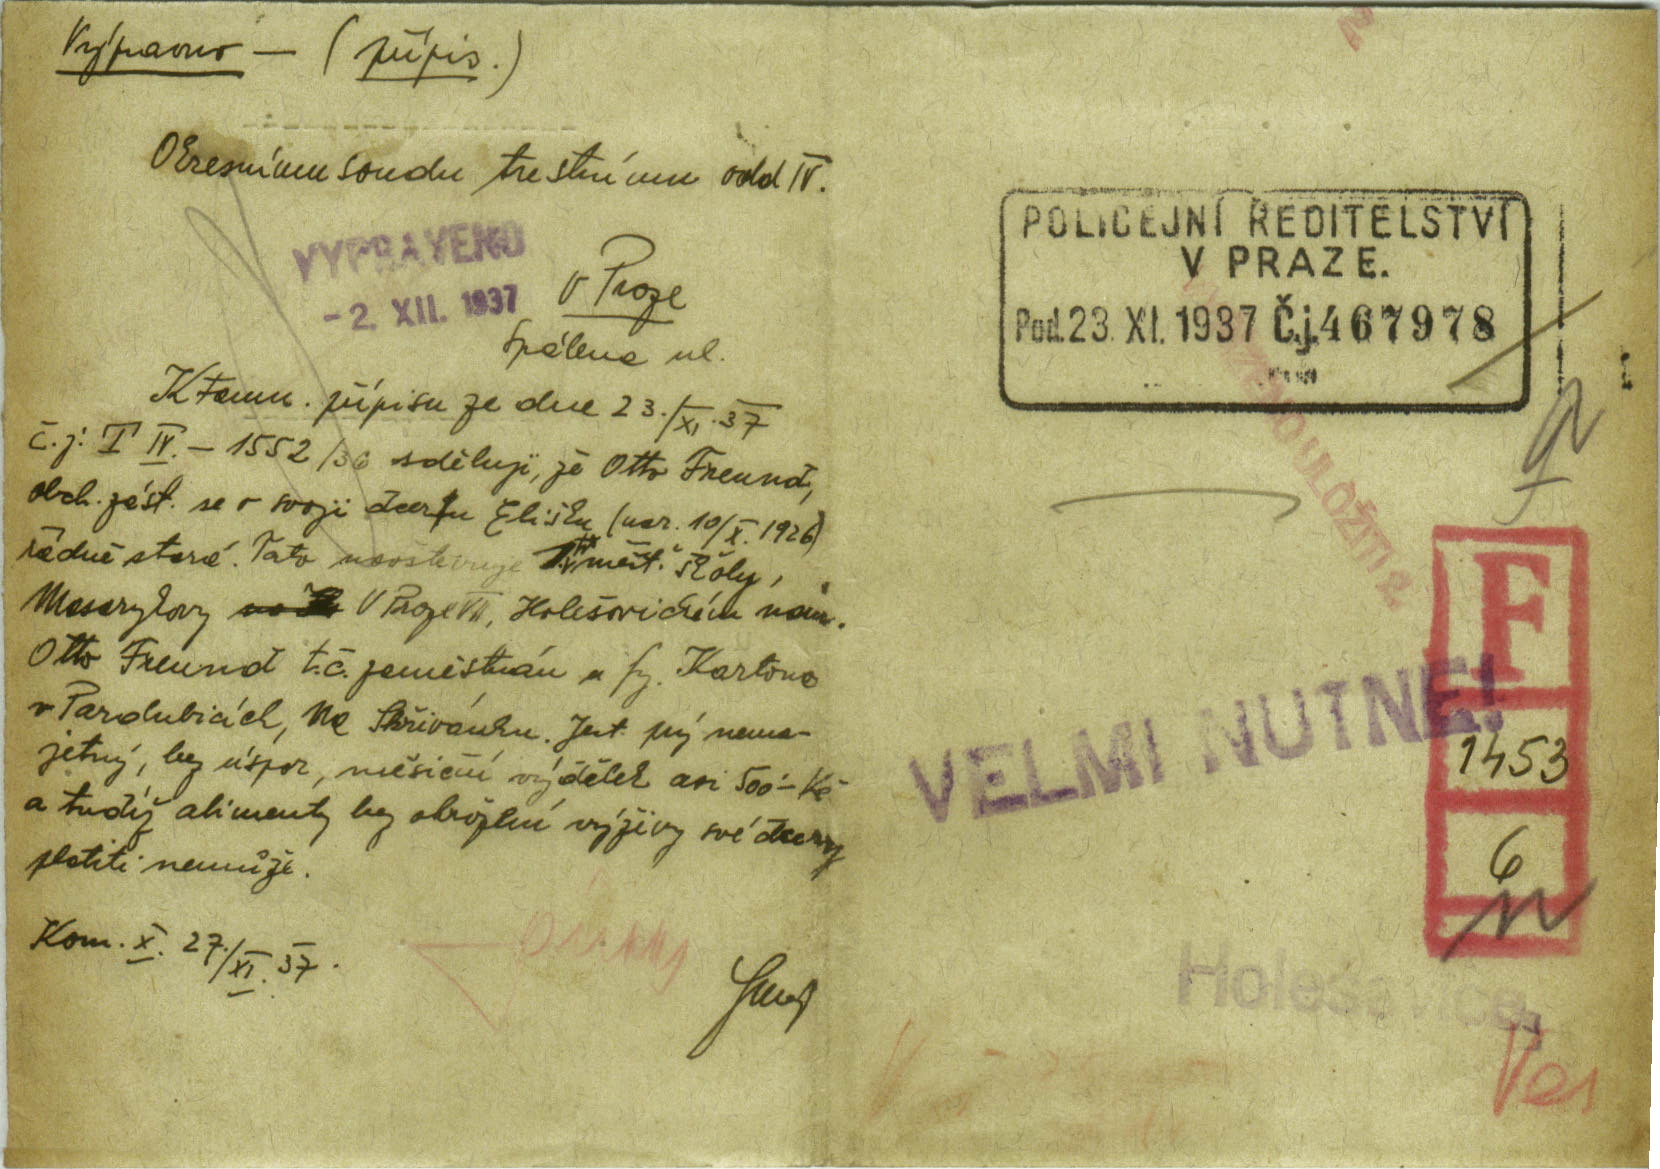 Výpravno — (přípis.)
Okresnímu soudu trestnímu odd IV.
VYPRAVENO
- 2. XII. 1937
V Praze
Spálená ul.
K tamn. přípisu ze dne 23./XI. 37
č.j: T IV. – 1552/36 sděluji, že Otto Freund,
obch. zást. se o svoji dceru Elišku (nar. 10/X. 1926)
řádně stará. Tato navštěvuje měšť. školy,
Masarykovy V Praze VII, Holešovickém nám.
Otto Freund t.č. zaměstnán u fy. Kartona
v Pardubicích, Na Skřivánku. Jest prý nema-
jetný, bez úspor, měsíční výdělek asi 500 – Kč
a tudíž alimenty bez ohrožení výživy své dcery
platiti nemůže.
Kom. X. 27./XI. 37.
POLICEJNÍ ŘEDITELSTVÍ
V PRAZE.
Pod. 23. XI. 1937 Č.j. 467978
ULOŽITI
VELMI NUTNÉ!
F
1453
6
Holešovice,